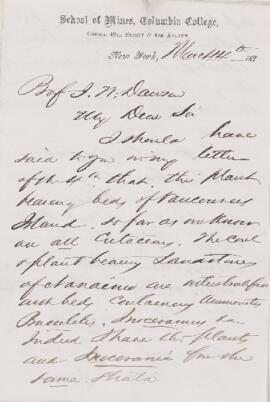 School of Mines, Columbia College,
Corner 49th Street & 4th Avenue
New York, March 14th 187
Prof J. W. Dawson
My Dear Sir
I should have
said to you in my letter
of the 4th that the plant
bearing beds of Vancouvers
Island so far as we know
are all Cretaceous. The coal
& plant bearing Sandstones
of Nanaimo are interstratified
with beds containing Ammonites
Baculites, Inoceramus &c
Indeed I have the plants
and Inocerami from the
same strata